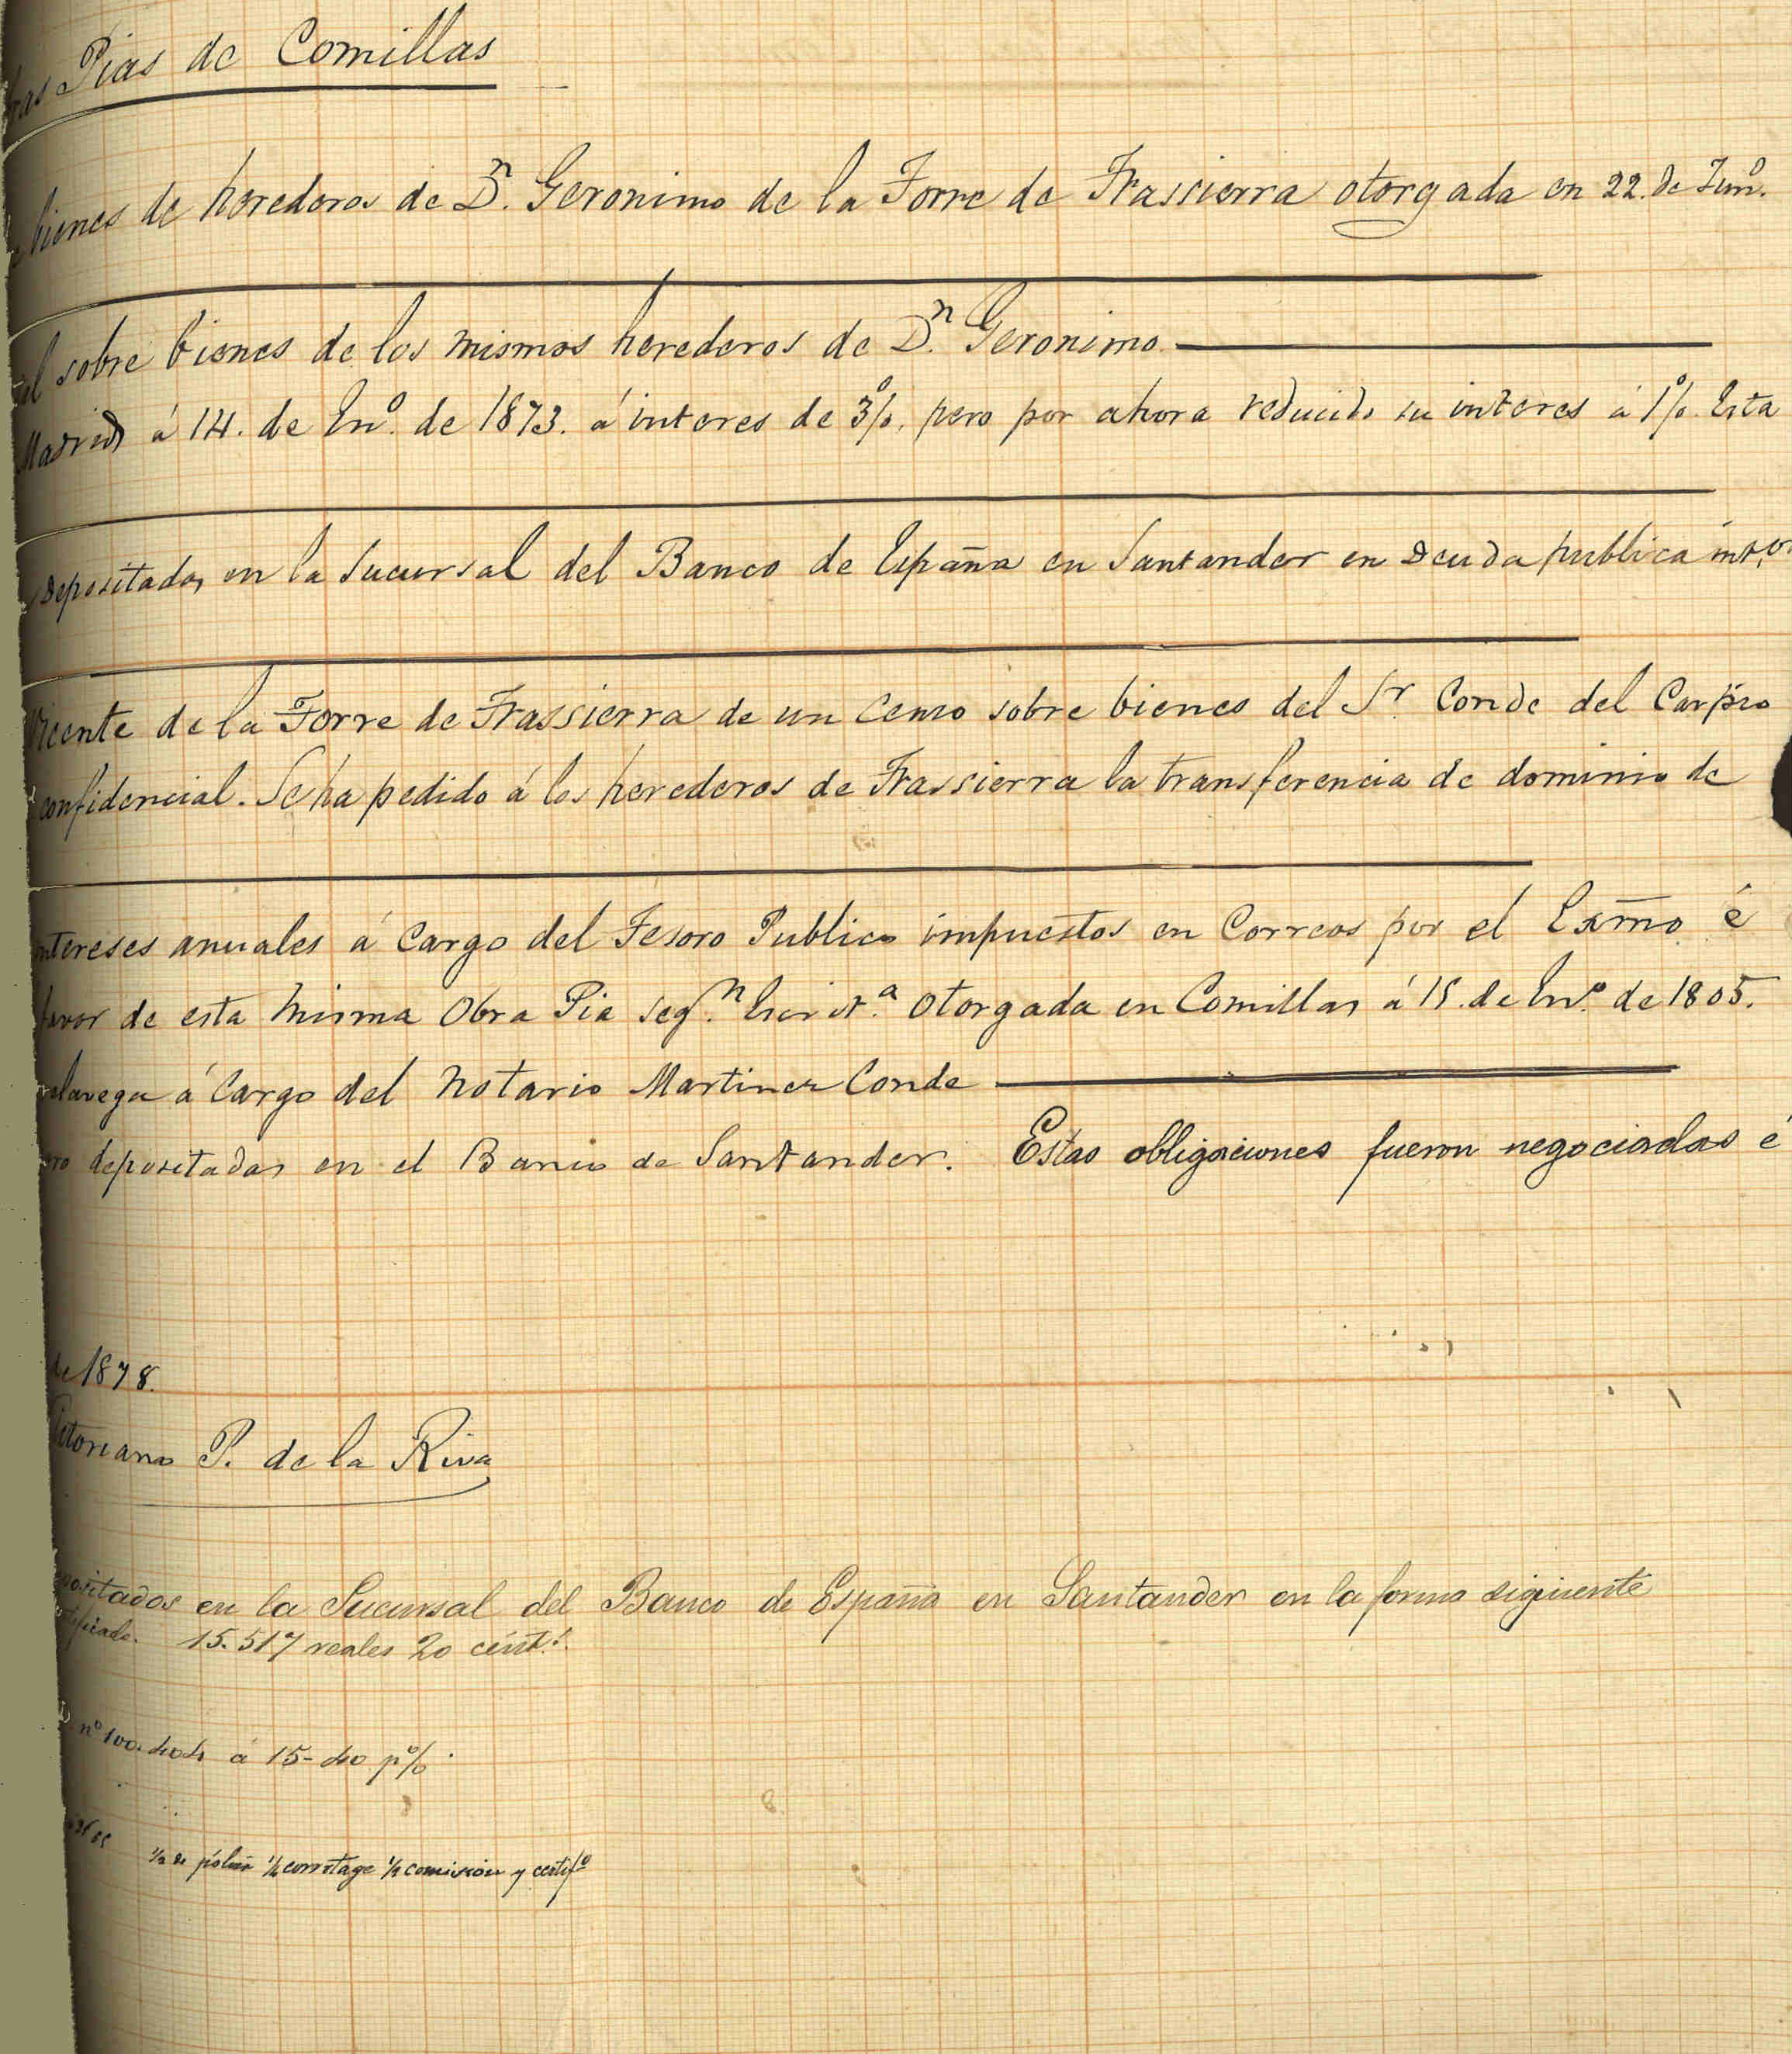 Pias de Comillas
bienes de herederos de Dn. Geronimo de la Torre de Trassierra otorgada en 22. de Jun.º
sobre bienes de los mismos herederos de Dn. Geronimo.
Madrid á 14. de En.º de 1873. á interes de 3%, pero por ahora reducido su interes á 1%. Esta
depositadas en la Sucursal del Banco de España en Santander en deuda publica
Vicente de la Torre de Trassierra de un Censo sobre bienes del Sr. Conde del Carpio
confidencial. Se ha pedido á los herederos de Trassierra la transferencia de dominio de
ntereses anuales á Cargo del Tesoro Publico impuestos en Correos por el Exmo. é
favor de esta misma Obra Pia segn. Escrit.ª otorgada en Comillas á 15. de En.º de 1805.
elavega á Cargo del Notario Martinez Conde
depositadas en el Banco de Santander. Estas obligaciones fueron negociadas é
de 1878.
Vitoriano P. de la Riva
positados en la Sucursal del Banco de España en Santander en la forma siguiente
15.517 reales 20 cént.s
nº 100.404 á 15-40 p%.
comision y certifº